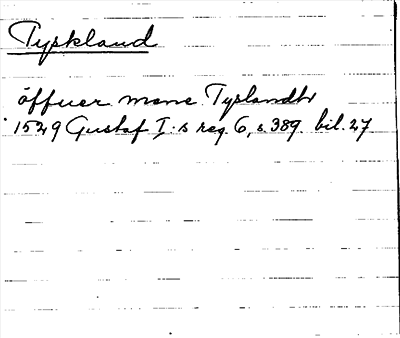 Tyskland
öffuer mone Tyslandhr
1529 Gustaf I:s reg. 6, s. 389. bil. 27